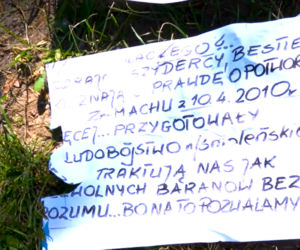 DLACZEGO?...
SZYDERCY, BESTIE
ZNAJĄ PRAWDĘ O POTWOR
ZAMACHU z 10.4. 2010 r.
ĘCEJ... PRZYGOTOWAŁY
LUDOBÓJSTWO n/Smoleńskie
TRAKTUJĄ NAS JAK
OLNYCH BARANÓW BEZ
ROZUMU... BO NA TO POZWALAMY